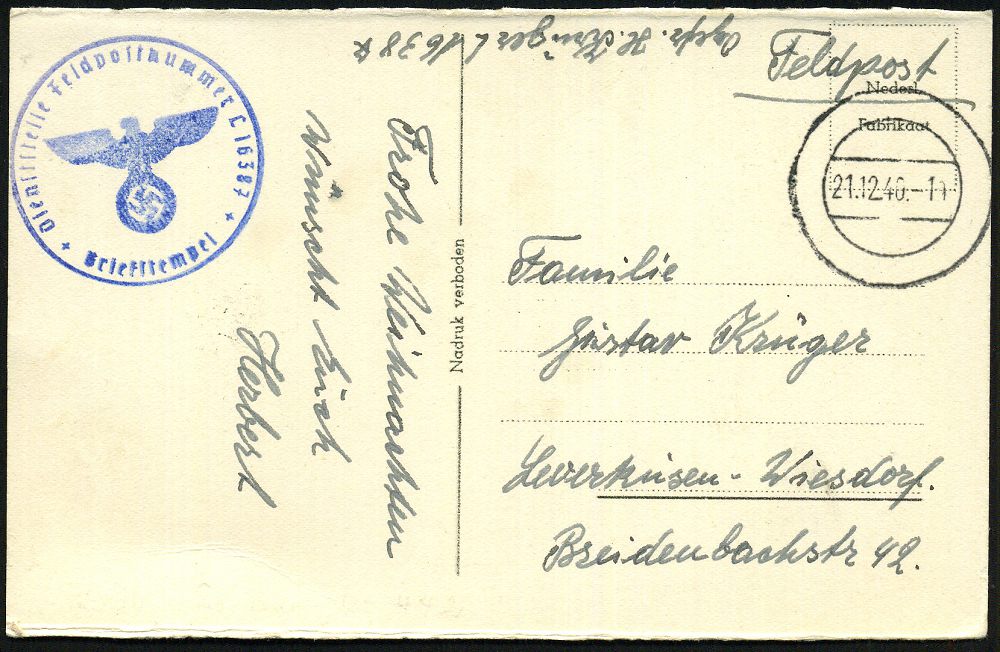 Dienststelle Feldpostnummer L 16387
Briefstempel
H. Krüger L
Feldpost
Nederl.
Fabrikaat
21.12.40.-
Frohe Weihnachten
wünscht Euch
Herbert
Nadruk verboden
Familie
Gustav Krüger
Leverkusen - Wiesdorf.
Breidenbachstr 42.